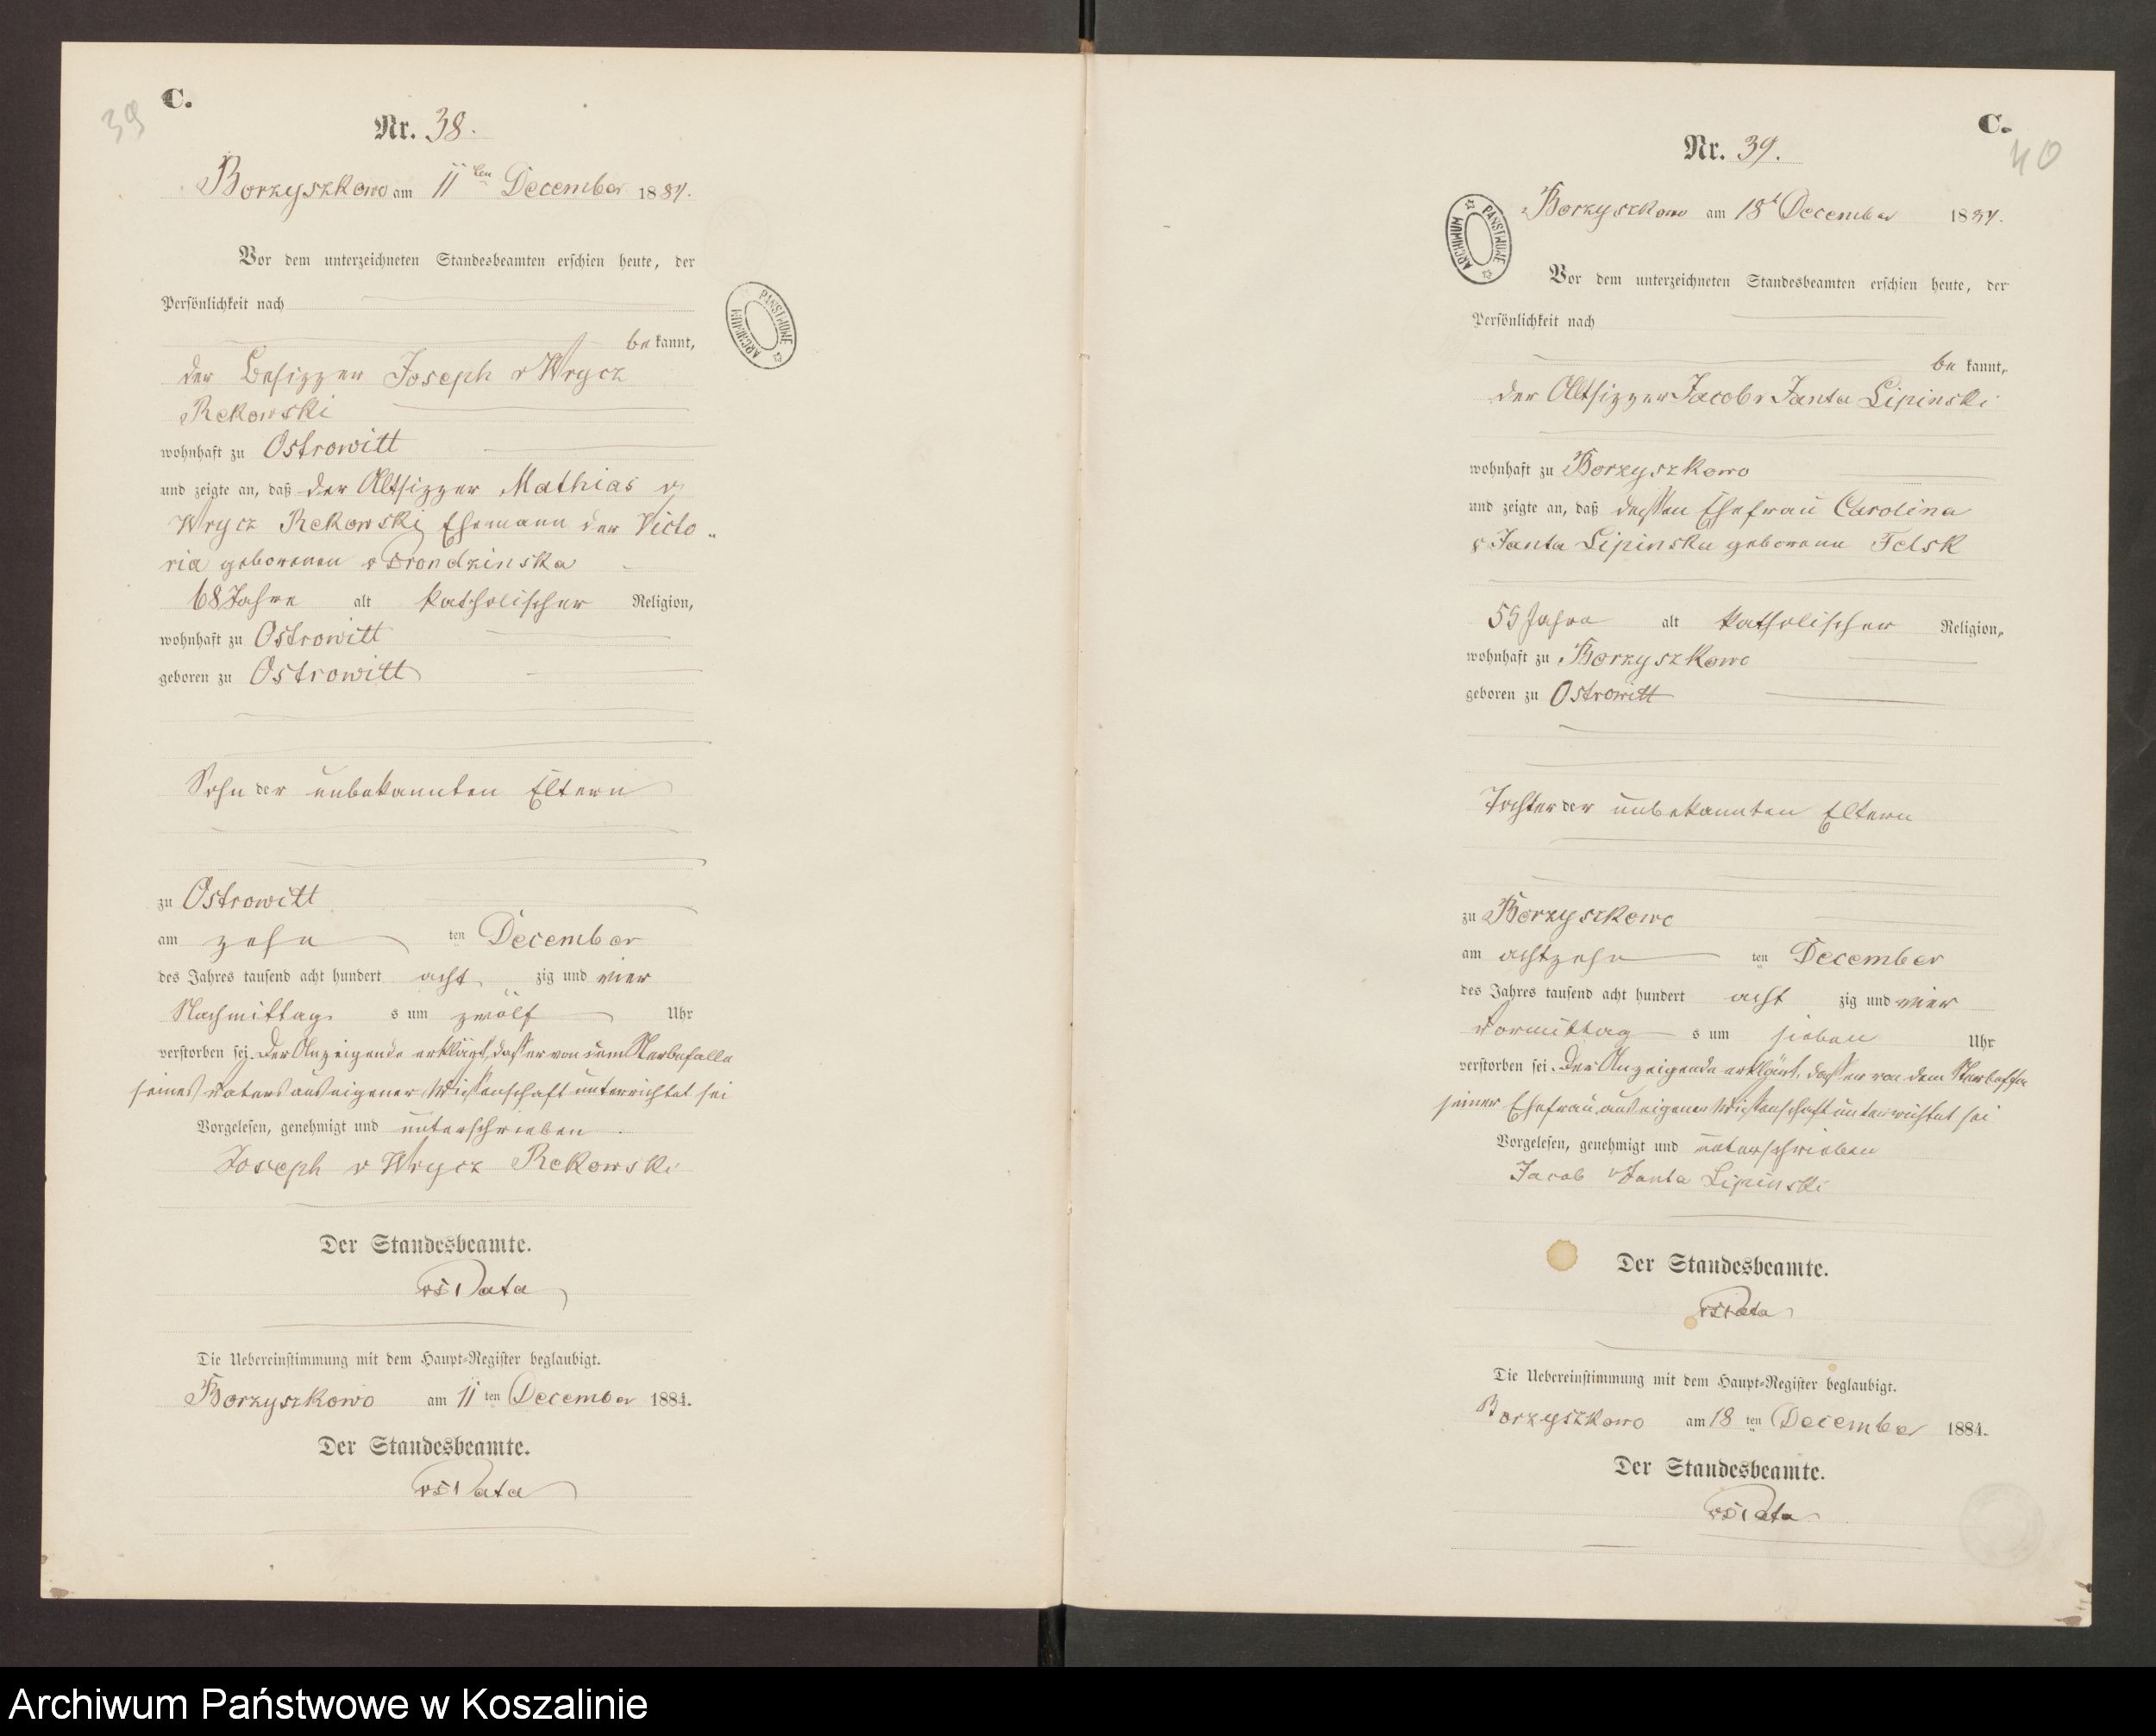 39
C.
Nr. 38.
Borzyszkowo am 11ten December 1884.
Vor dem unterzeichneten Standesbeamten erschien heute, der
Persönlichkeit nach
bekannt,
der Besizzer Joseph v Wrycz
Rekowski
wohnhaft zu Ostrowitt
und zeigte an, daß der Altsizzer Mathias v
Wrycz Rekowski Ehemann der Victo„
ria geborenen v Prondzinska
68 Jahre alt katholischer Religion,
wohnhaft zu Ostrowitt
geboren zu Ostrowitt
Sohn der unbekannten Eltern
zu Ostrowitt
am zehn ten December
des Jahres tausend acht hundert acht zig und vier
Nachmittag s um zwölf Uhr
verstorben sei. Der Anzeigende erklärt, dass er von dem Sterbefalle
seines Vaters aus eigener Wissenschaft unterrichtet sei
Vorgelesen, genehmigt und unterschrieben
Joseph v Wrycz Rekowski
Der Standesbeamte.
Die Uebereinstimmung mit dem Haupt-Register beglaubigt.
Borzyszkowo am 11 ten December 1884.
Der Standesbeamte.
ARCHIWUM PAŃSTWOWE
C.
40
Nr. 39.
Borzyszkowo am 18t December 1884.
ARCHIWUM PAŃSTWOWE
Vor dem unterzeichneten Standesbeamten erschien heute, der
Persönlichkeit nach
bekannt,
der Altsizzer Jacob v Janta Lipinski
wohnhaft zu Borzyszkowo
und zeigte an, daß dessen Ehefrau Carolina
v Janta Lipinska geborene Felsk
55 Jahre alt katholischer Religion,
wohnhaft zu Borzyszkowo
geboren zu Ostrowitt
Tochter der unbekannten Eltern
zu Borzyszkowo
am achtzehn ten December
des Jahres tausend acht hundert acht zig und vier
Vormittag s um sieben Uhr
verstorben sei. Der Anzeigende erklärt, dass er von dem
seiner Ehefrau aus eigener Wissenschaft unterrichtet sei
Vorgelesen, genehmigt und unterschrieben
Jacob v Janta Lipinski
Der Standesbeamte.
Die Uebereinstimmung mit dem Haupt-Register beglaubigt.
Borzyszkowo am 18 ten December 1884.
Der Standesbeamte.
Archiwum Państwowe w Koszalinie